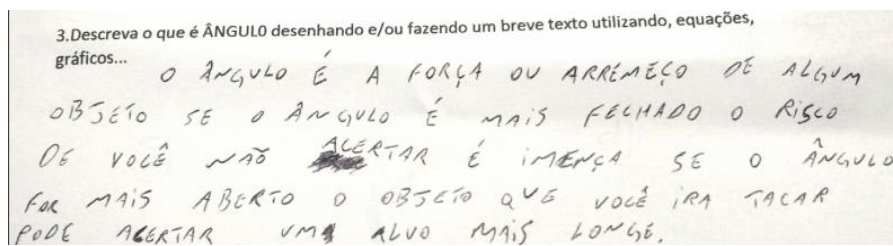 3.Descreva o que é ÂNGULO desenhando e/ou fazendo um breve texto utilizando, equações,
gráficos...
O ÂNGULO É A FORÇA OU ARREMEÇO DE ALGUM
OBJETO SE O ÂNGULO É MAIS FECHADO O RISCO
DE VOCÊ NÃO ACERTAR É IMENÇA SE O ÂNGULO
FOR MAIS ABERTO O OBJETO QUE VOCÊ IRA TACAR
PODE ACERTAR UM ALVO MAIS LONGE.